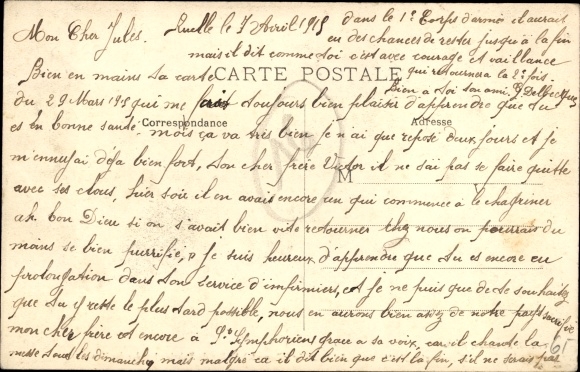 Mon Cher Jules. Ruelle le 7 Avril 1915
Bien en mains ta carte
CARTE POSTALE
du 29 Mars 1915 qui me fais toujours bien plaisir d'apprendre que tu
es en bonne santé
Correspondance
Adresse
mois ça va très bien je n'ai que reposé deux jours et je
m'ennuyai déja bien fort, ton cher frère Victor il ne sai pas se faire quitte
M
avec ses clous, hier soir il en avais encore un qui commence à le chagriner
ah bon Dieu si on s'avait bien vite retourner chez nous on pourrais du
moins se bien purrifié, je suis heureux d'apprendre que tu es encore en
prolongation dans ton service d'infirmiers, et je ne puis que de te souhaitez
que tu y reste le plus tard possible, nous en aurons bien assez de notre pays sacrifié
mon cher frère est encore à St Symphorien grace a sa voix, car il chante la
messe tous les dimanche, mais malgré ca il dit bien que c'est la fin, s'il ne serais pas
dans le 1er Corps d'armé il aurait
eu des chances de rester jusqu'à la fin
mais il dit comme toi c'est avec courage et vaillance
qui retournera la 2e fois.
Bien a toi ton ami
61